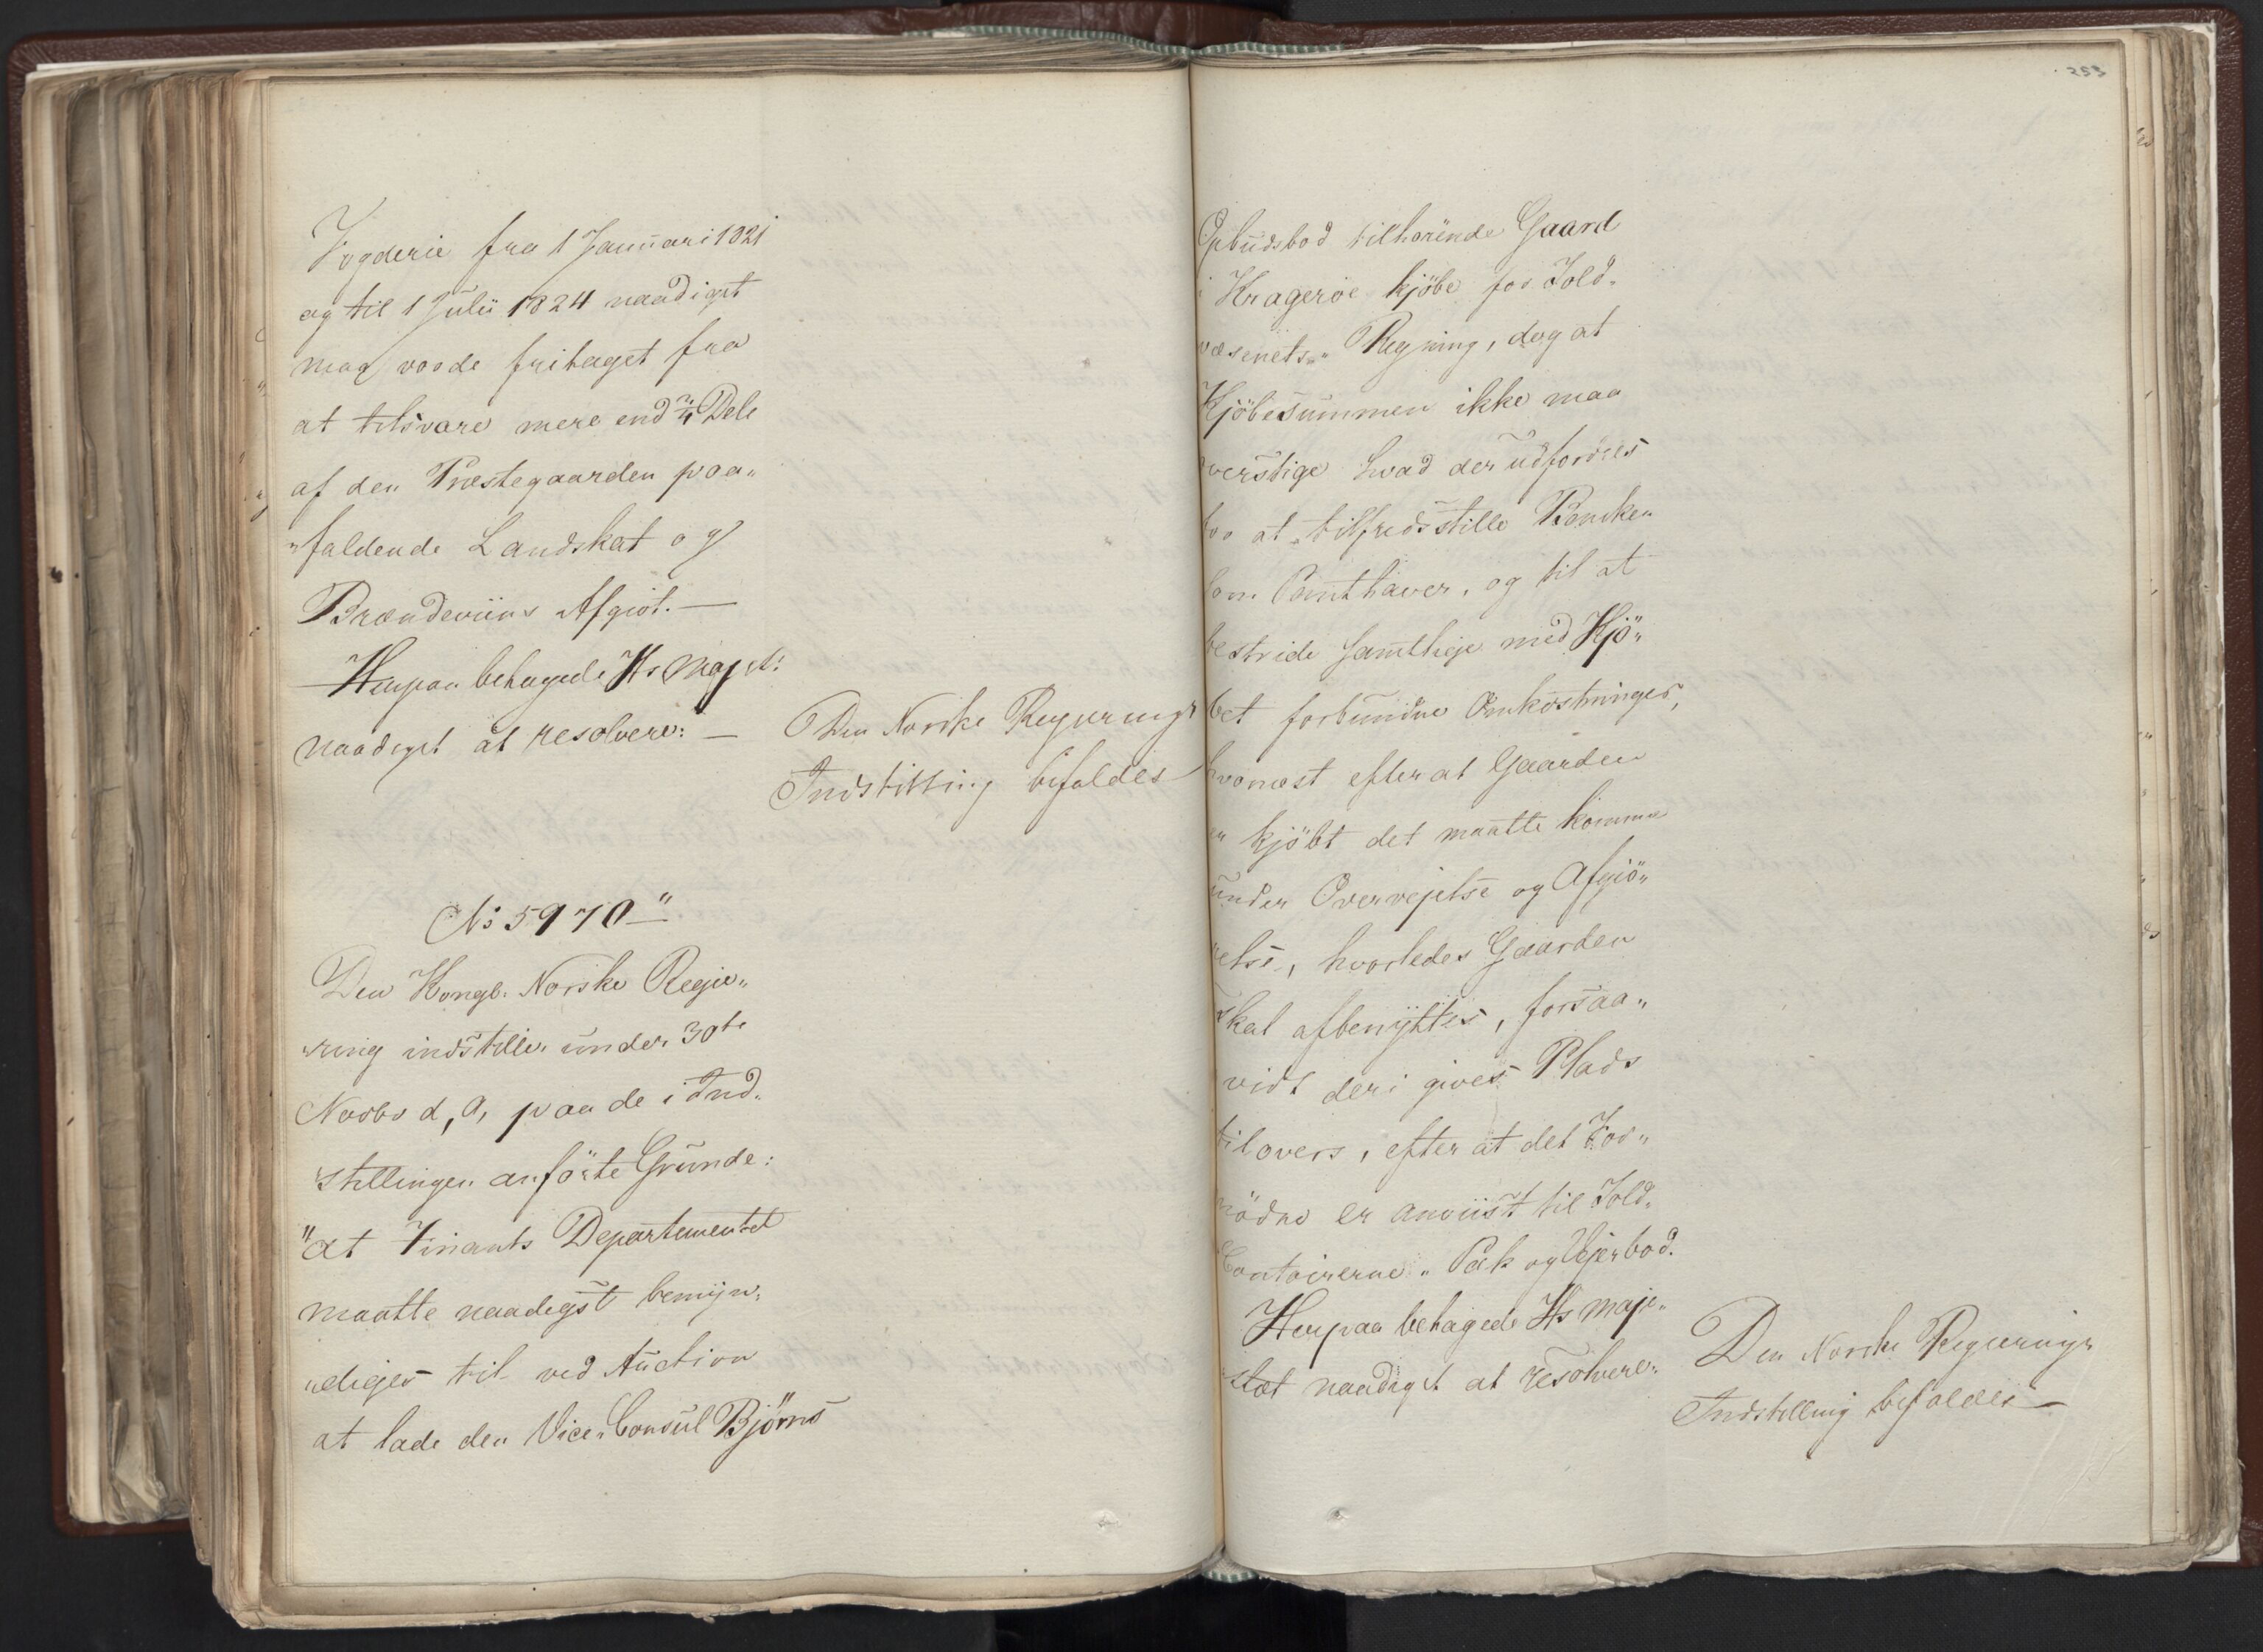 Fogderie fra 1 Januari 1821
og til 1 Julii 1824 naadigst
maa vorde fritaget fra
at tilsvare mere end 3/4 Dele
af den Præstegaarden paa„
„faldende Landskat og
Brændeviins Afgivt. —
Herpaa behagede Hs Majst:
naadigst at resolvere: —
Den Norske Regjerings
Indstilling bifaldes
No 5970"
Den Kongl. Norske Regje„
„ring indstiller under 30te
Novbr d, A, paa de i Ind„
stillingen anförte Grunde:
"at Finants Departementet
maatte naadigst bemyn„
„diges til ved Auction
at lade den Vice„Consul Björns
253
Opbudsbod tilhørende Gaard
i Kragerøe kjöbe for Told„
væsenets„ Regning, dog at
Kjöbesummen ikke maa
overstige hvad der udfordres
for at tilfredsstille Banken
som Panthaver, og til at
bestride samtlige med Kjö„
bet forbundne Omkostninger,
hvornæst efter at Gaarden
er kjöbt det maatte komme
under Overvejelse og Afgiö„
relse, hvorledes Gaarden
skal afbenyttes, forsaa„
vidt deri gives Plads
tilovers, efter at det For„
nödne er anviist til Told„
Contoirerne„ Pak og Vejerbod.
Herpaa behagede Hs Maje„
stæt naadigst at resolvere:
Den Norske Regjerings
Indstilling bifaldes